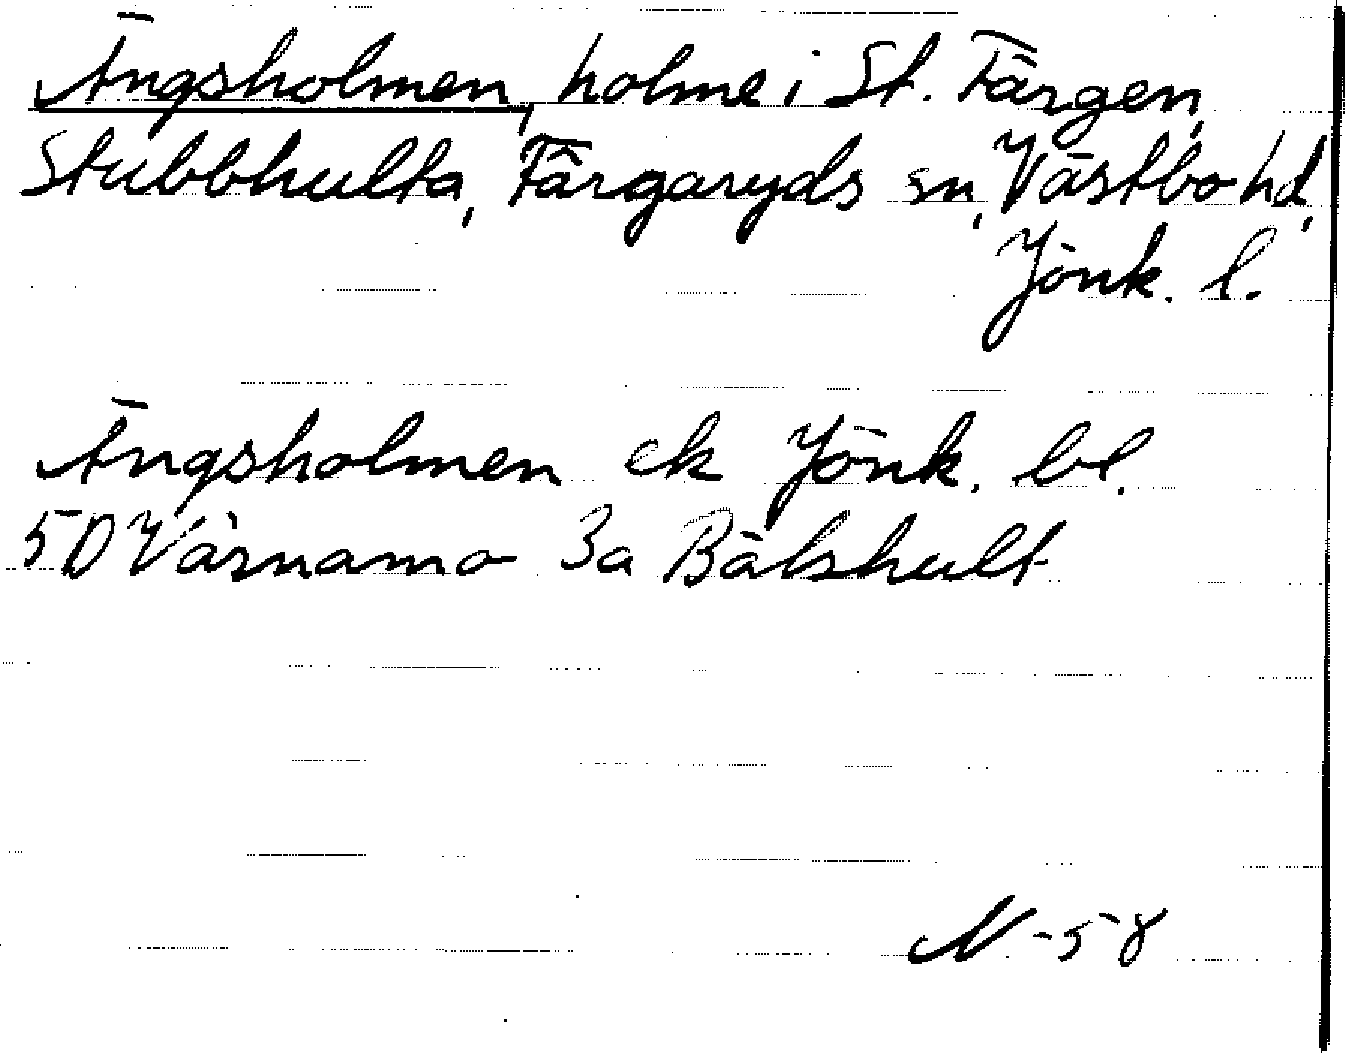 Ängsholmen, holme i St. Färgen,
Stubbhulta, Färgaryds sn, Västbo hd,
Jönk. l.
Ängsholmen ek Jönk. bl.
5D Värnamo 3a Bälshult
N-58